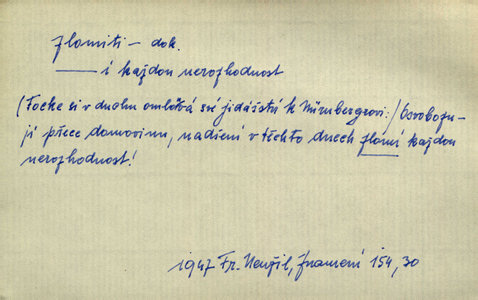 zlomiti – dok.
——— i každou nerozhodnost
(Focke si v duchu omlouvá své jidášství k Nürnbergrovi:) Osvobozu-
jí přece domovinu, nadšení v těchto dnech zlomí každou
nerozhodnost!
1947 Fr. Neužil, Znamení 154, 30